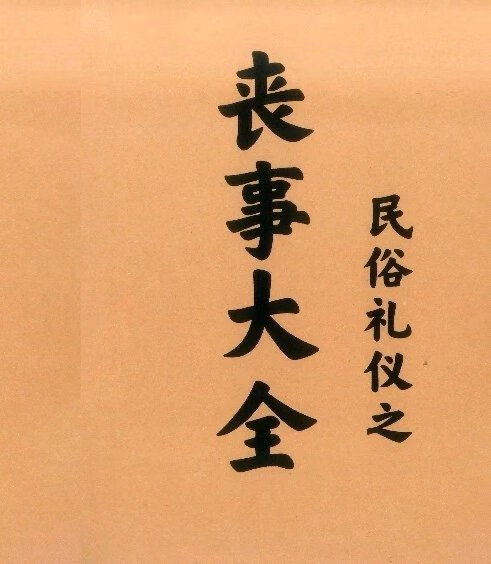 民俗礼仪之
丧事大全